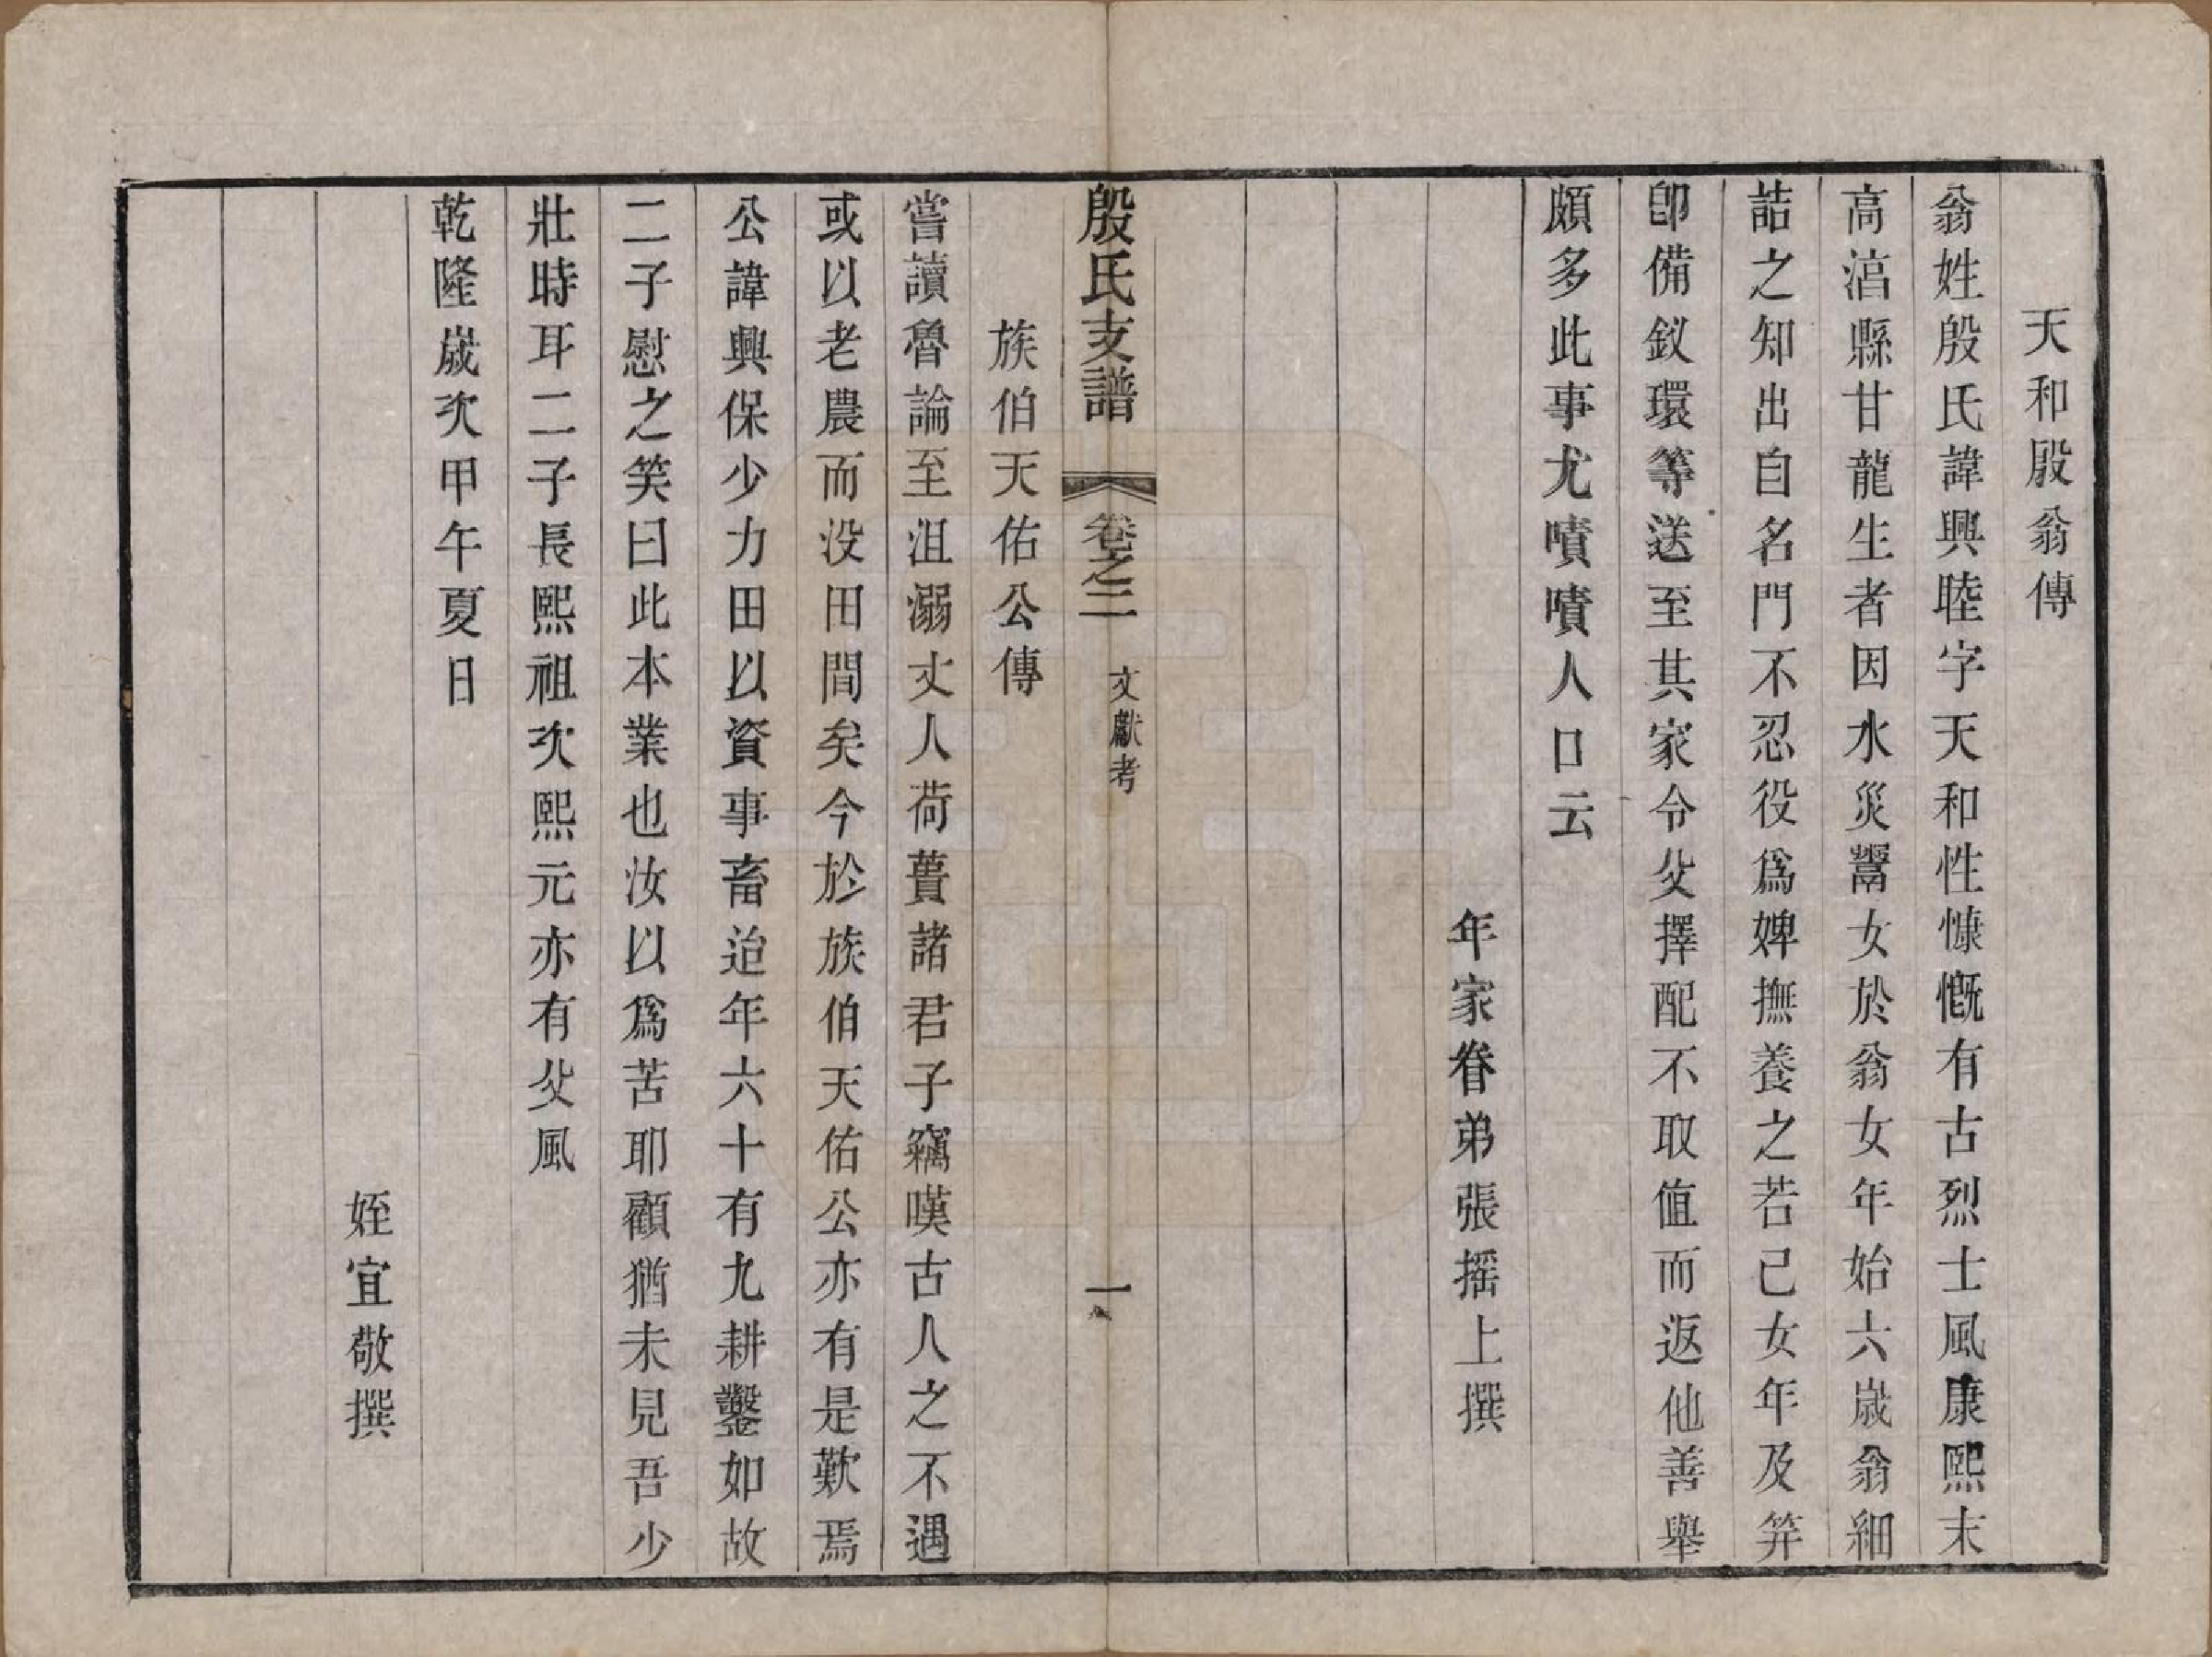 天和殷翁傳
翁姓殷氏諱興睦字天和性慷慨有古烈士風康熙末
高湻縣甘龍生者因水災鬻女於翁女年始六歲翁細
詰之知出自名門不忍役爲婢撫養之若己女年及笄
卽備釵環等送至其家令父擇配不取值而返他善舉
頗多此事尤嘖嘖人口云
年家眷弟張摇上撰
殷氏支譜
卷之二
文獻考
一
族伯天佑公傳
嘗讀魯論至沮溺丈人荷蕢諸君子竊嘆古人之不遇
或以老農而没田間矣今於族伯天佑公亦有是歎焉
公諱興保少力田以資事畜迨年六十有九耕鑿如故
二子慰之笑曰此本業也汝以爲苦耶顧猶未見吾少
壯時耳二子長熙祖次熙元亦有父風
乾隆歲次甲午夏日
姪宜敬撰